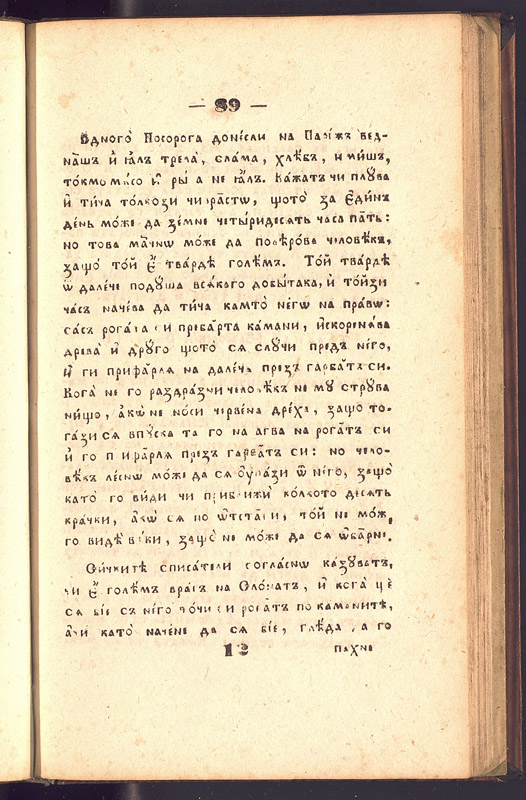 — 89 —
Едного̀ Носорога доне́сли на Пари́жъ вед-
на́шъ и҆ ꙗ҆́лъ трева̀, сла́ма, хлѣ́бъ, и ми́шъ,
то́кмо ме́со и҆ ры́ а не ꙗ҆́лъ. Ка́жатъ чи плꙋ́ва
и҆ ти́ча то́лкози чи ра́стѡ, щото̀ за Еди́нъ
де́нь мо́же да зе́мне четы́ридесять часа па́ть:
но това ма́чнѡ мо́же да повѣ́рѡва человѣ́къ,
защо̀ то́й Е҆ тва́рдѣ голѣ́мъ. То́й тва́рдѣ
ѿ дале́че подꙋ́ша вся́каго добы́така, и҆ то́йзи
ча́съ наче́ва да ти́ча камто̀ не́гѡ на пра́вѡ:
са́съ рога́та си преба́рта ка́мани, и҆скореня́ва
древа̀ и҆ дрꙋ́го щото̀ ся слꙋ́чи предъ не́го,
и҆ ги прифа́рля на дале́че презъ гарба́тъ си.
Кога̀ не го раздра́зни человѣ́къ не мꙋ стрꙋ́ва
ни́що, а҆кѡ̀ не но́си черве́на дре́ха, защо то-
га́зи ся впꙋ́ска та го на агва на рога́тъ си
и҆ го прифа́рля презъ гарба́тъ си: но чело-
вѣ́къ ле́снѡ мо́же да ся ѿ не́го, защо̀
като̀ го ви́ди чи приближи́ ко́лкото де́сять
кра́чки, а҆кѡ̀ ся по ѿста́ви, то́й не мо́же
го видѣ́ ве́ки, защо̀ не мо́же да ся ѡ҆ба́рне.
Си́чкитѣ списа́тели согла́снѡ ка́зꙋватъ,
чи Е҆ голѣ́мъ вра́гъ на Сло́натъ, и҆ кога̀ ще
ся бі́е съ не́го то́чи си рога́тъ по ка́манитѣ,
а҆ми като̀ наче́не да ся бі́е, глѣ́да да го
12 пахне